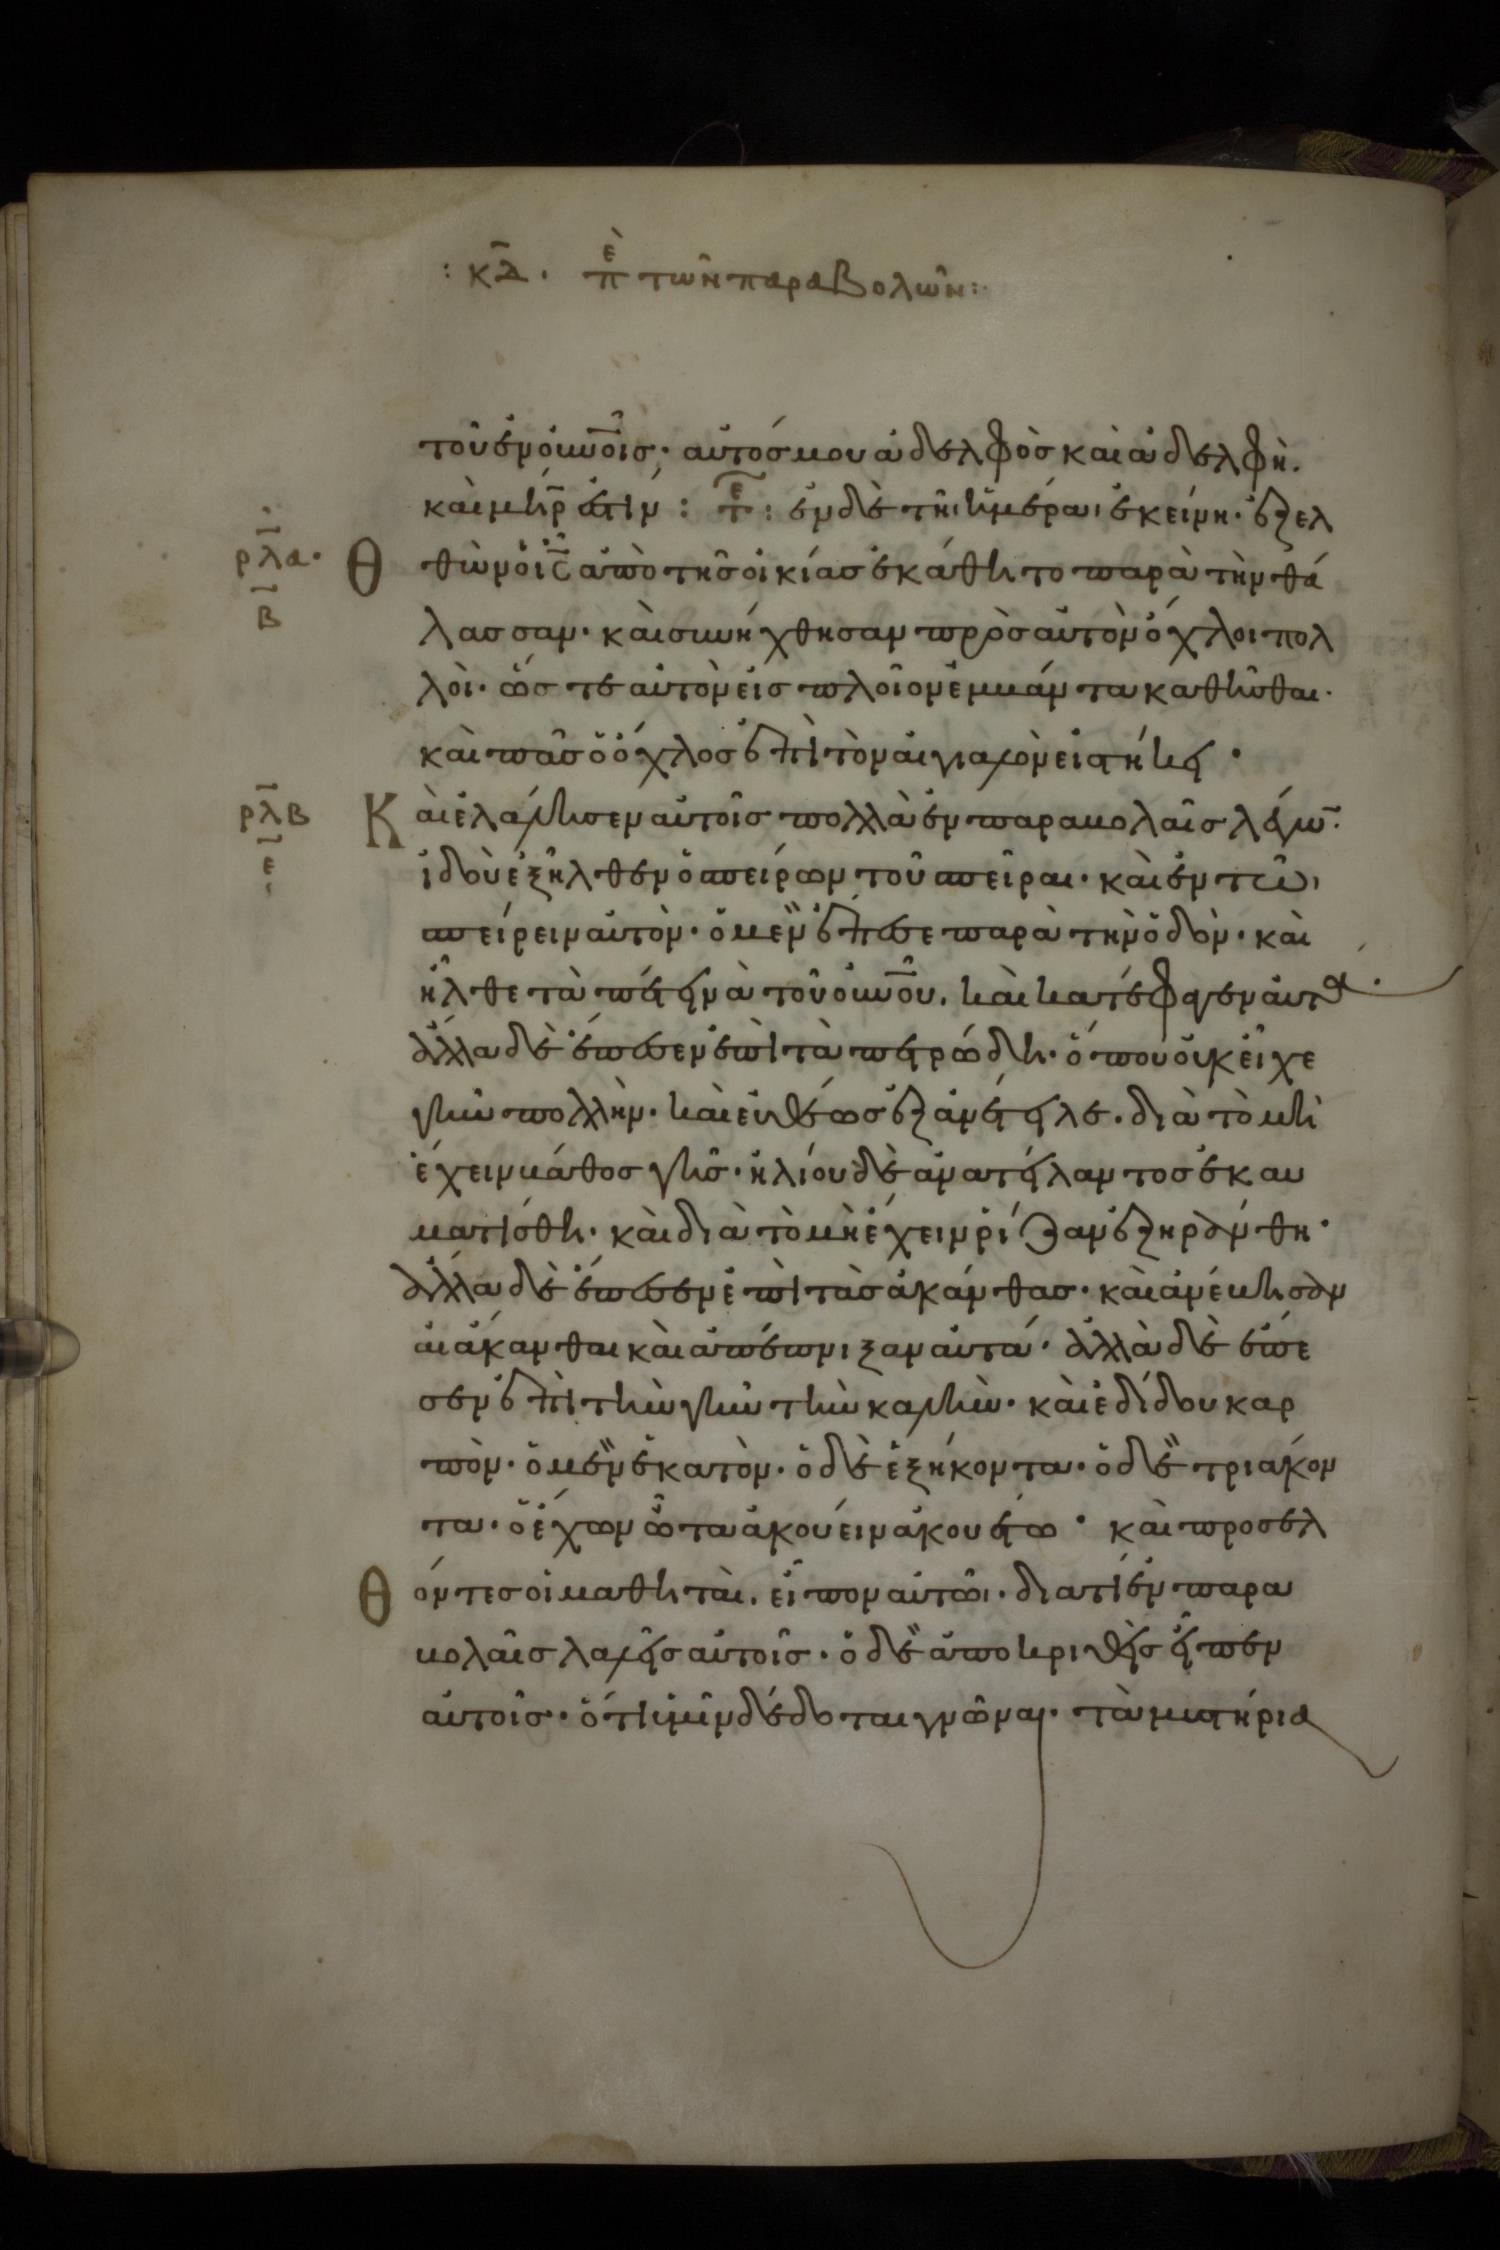 : κδ̄. ἐπ τῶν παραβολῶν :
τοῦ ἐν οὐνοῖς· αὐτός μου ἀδελφὸς καὶ ἀδελφὴ.
καὶ μηρ ἐστίν : τε : ἐν δὲ τῆι ἡμέραι ἐκείνη· ἐξελ
ρλα· θὼν ὁ ις̄ ἀπὸ τῆς οἰκίας ἐκάθητο παρὰ τὴν θά
β
λασσαν· καὶ συνήχθησαν πρὸς αὐτὸν ὄχλοι πολ
λοὶ· ὥστε αὐτὸν εἰς πλοῖον ἐμβάντα καθῆσθαι·
καὶ πᾶς ὁ ὄχλος ἐπὶ τὸν αἰγιαλὸν εἱστήκει·
ρλβ Καὶ ἐλάλησεν αὐτοῖς πολλὰ ἐν παραβολαῖς λέγων·
ε
ἰδοὺ ἐξῆλθεν ὁ σπείρων τοῦ σπεῖραι· καὶ ἐν τῶι
σπείρειν αὐτὸν· ὃ μὲν ἔπεσε παρὰ τὴν ὁδὸν· καὶ
ἦλθε τὰ πετεινὰ τοῦ οὐνοῦ. καὶ κατέφαγεν αὐτα·
ἄλλα δὲ ἔπεσεν ἐπὶ τὰ πετρώδη· ὅπου οὐκ εἶχε
γῆν πολλὴν· καὶ εὐθέως ἐξανέτειλε. διὰ τὸ μὴ
ἔχειν βάθος γῆς· ἡλίου δὲ ἀνατείλαντος ἐκαυ
ματίσθη· καὶ διὰ τὸ μὴ ἔχειν ρίζαν ἐξηράνθη·
ἄλλα δὲ ἔπεσεν ἐπὶ τὰς ἀκάνθας· καὶ ἀνέβησαν
αἱ ἄκανθαι καὶ ἀπέπνιξαν αὐτά· ἄλλα δὲ ἔπε
σεν ἐπὶ τὴν γῆν τὴν καλὴν· καὶ ἐδίδου καρ
πὸν· ὃ μὲν ἑκατὸν· ὃ δὲ ἑξήκοντα· ὃ δὲ τριάκον
τα· ὁ ἔχων ὦτα ἀκούειν ἀκουέτω· καὶ προσελ
θόντες οἱ μαθηταὶ. εἶπον αὐτῶι· διατί ἐν παρα
βολαῖς λαλεῖς αὐτοῖς· ὁ δὲ ἀποκριθεὶς εἶπεν
αὐτοῖς· ὅτι ὑμῖν δέδοται γνῶναι· τὰ μυστήρια